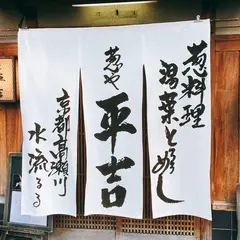 葱料理
湯葉とめし
葱や
平吉
京都高瀬川
水流るる